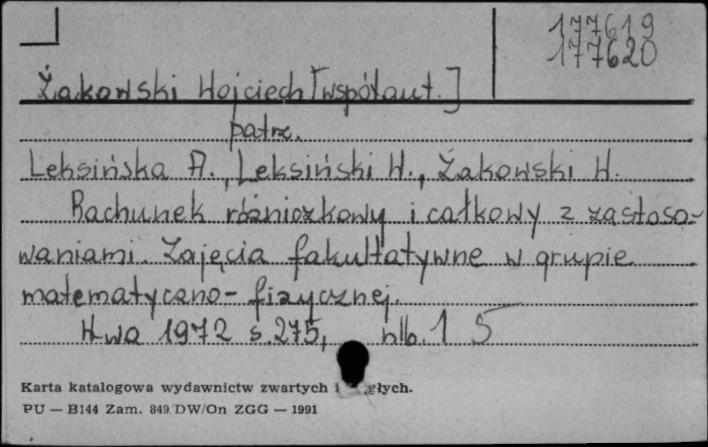 177619
177620
Żakowski Wojciech [współaut.]
patrz.
Leksińska A., Leksiński W., Żakowski W.
Rachunek różniczkowy i całkowy z zastoso-
waniami. Zajęcia fakultatywne w grupie
matematyczno-fizycznej.
W-wa 1972 s. 275, nlb. 1 5
Karta katalogowa wydawnictw zwartych i
PU — B144 Zam. 849/DW/On ZGG — 1991